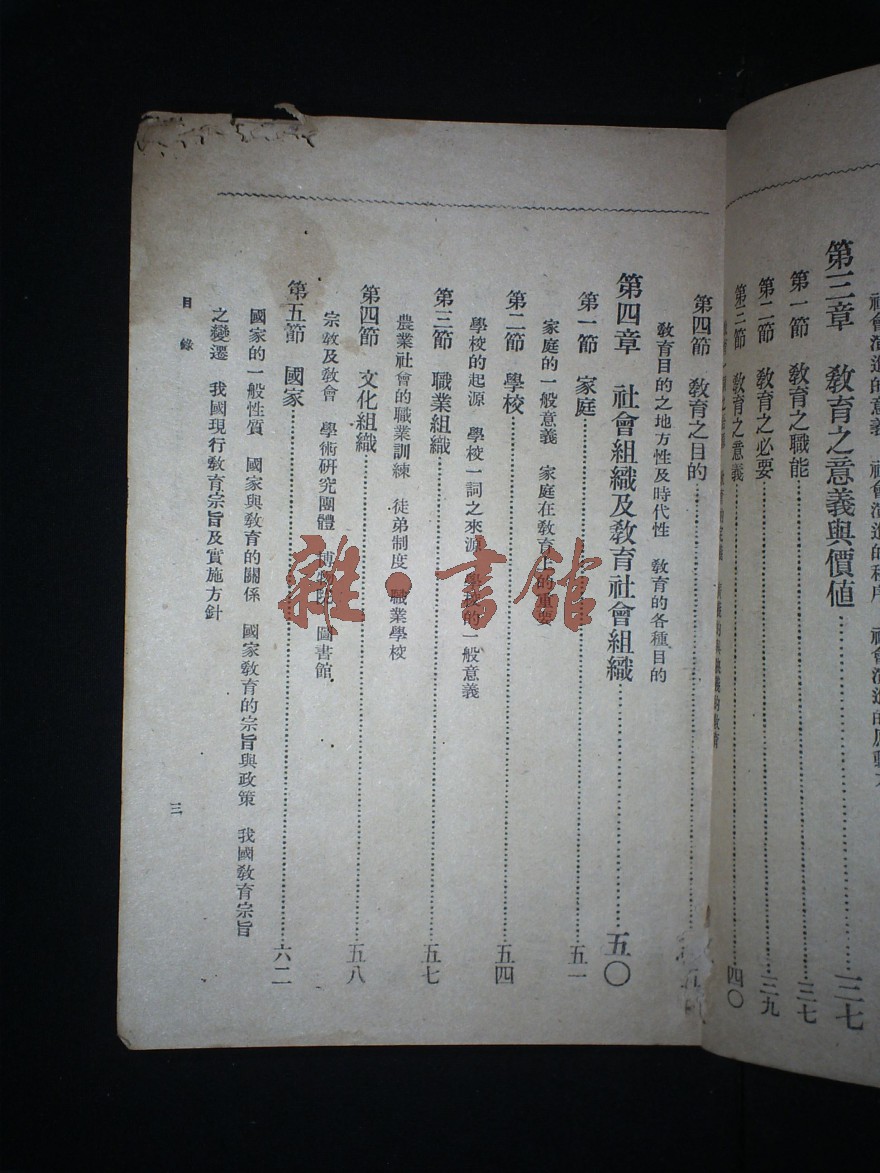 社會演進的意義　社會演進的程序　社會演進的原動力
第三章　教育之意義與價値……三七
第一節　教育之職能……三七
第二節　教育之必要……三九
第三節　教育之意義……四〇
第四節　教育之目的……
教育目的之地方性及時代性　教育的各種目的
第四章　社會組織及教育社會組織……五〇
第一節　家庭……五一
家庭的一般意義　家庭在教育上的重要
第二節　學校……五四
學校的起源　學校一詞之來源　學校的一般意義
第三節　職業組織……五七
農業社會的職業訓練　徒弟制度　職業學校
第四節　文化組織……五八
宗教及教會　學術研究團體　博物院　圖書館
第五節　國家……六二
國家的一般性質　國家與教育的關係　國家教育的宗旨與政策　我國教育宗旨
之變遷　我國現行教育宗旨及實施方針
目錄
三
雜·書館